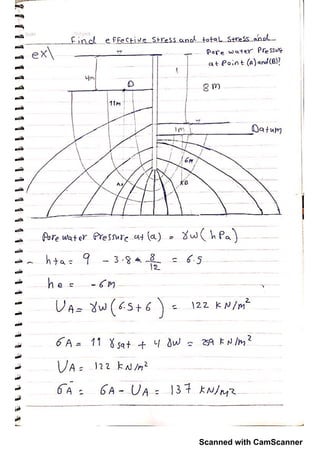 Find effective stress and total stress and
ex\ Pore water Pressure
at Point (A) and (B)?
4m
8m
11m
1m Datum
6m
A B
Pore water Pressure at (a) = γw( hPa)
hta = 9 - 3.8 * 8/12 = 6.5
he = -6m
UA = γw (6.5+6) = 122 kN/m²
бA = 11 γsat + 4 γw = 259 kN/m²
UA = 122 kN/m²
бA = бA - UA = 137 kN/m²
Scanned with CamScanner